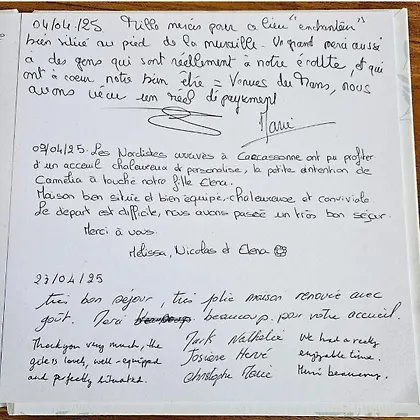 04/04/25 Mille mercis pour ce lieu "enchanteur"
bien situé au pied de la muraille. Un grand merci aussi
à des gens qui sont réellement à notre écoute, et qui
ont à coeur notre bien être = Venues du Mans, nous
avons vécu un réel dépaysement
Marie
09/04/25. Les Nordistes arrivés à Carcassonne ont pu profiter
d'un acceuil chaleureux et personalisé, la petite attention de
Camélia a touché notre fille Elena.
Maison bien située et bien équipé, chaleureuse et conviviale.
Le départ est difficile, nous avons passé un très bon séjour.
Merci à vous.
Melissa, Nicolas et Elena
27/04/25
très bon séjour, très jolie maison renovée avec
goût. Merci beaucoup pour votre accueil.
Thank you very much, the
gite is lovely, well-equipped
and perfectly situated.
Mark Nathalie
Josiane Hervé
Christophe Marie
We had a really
enjoyable time.
Merci beaucoup.